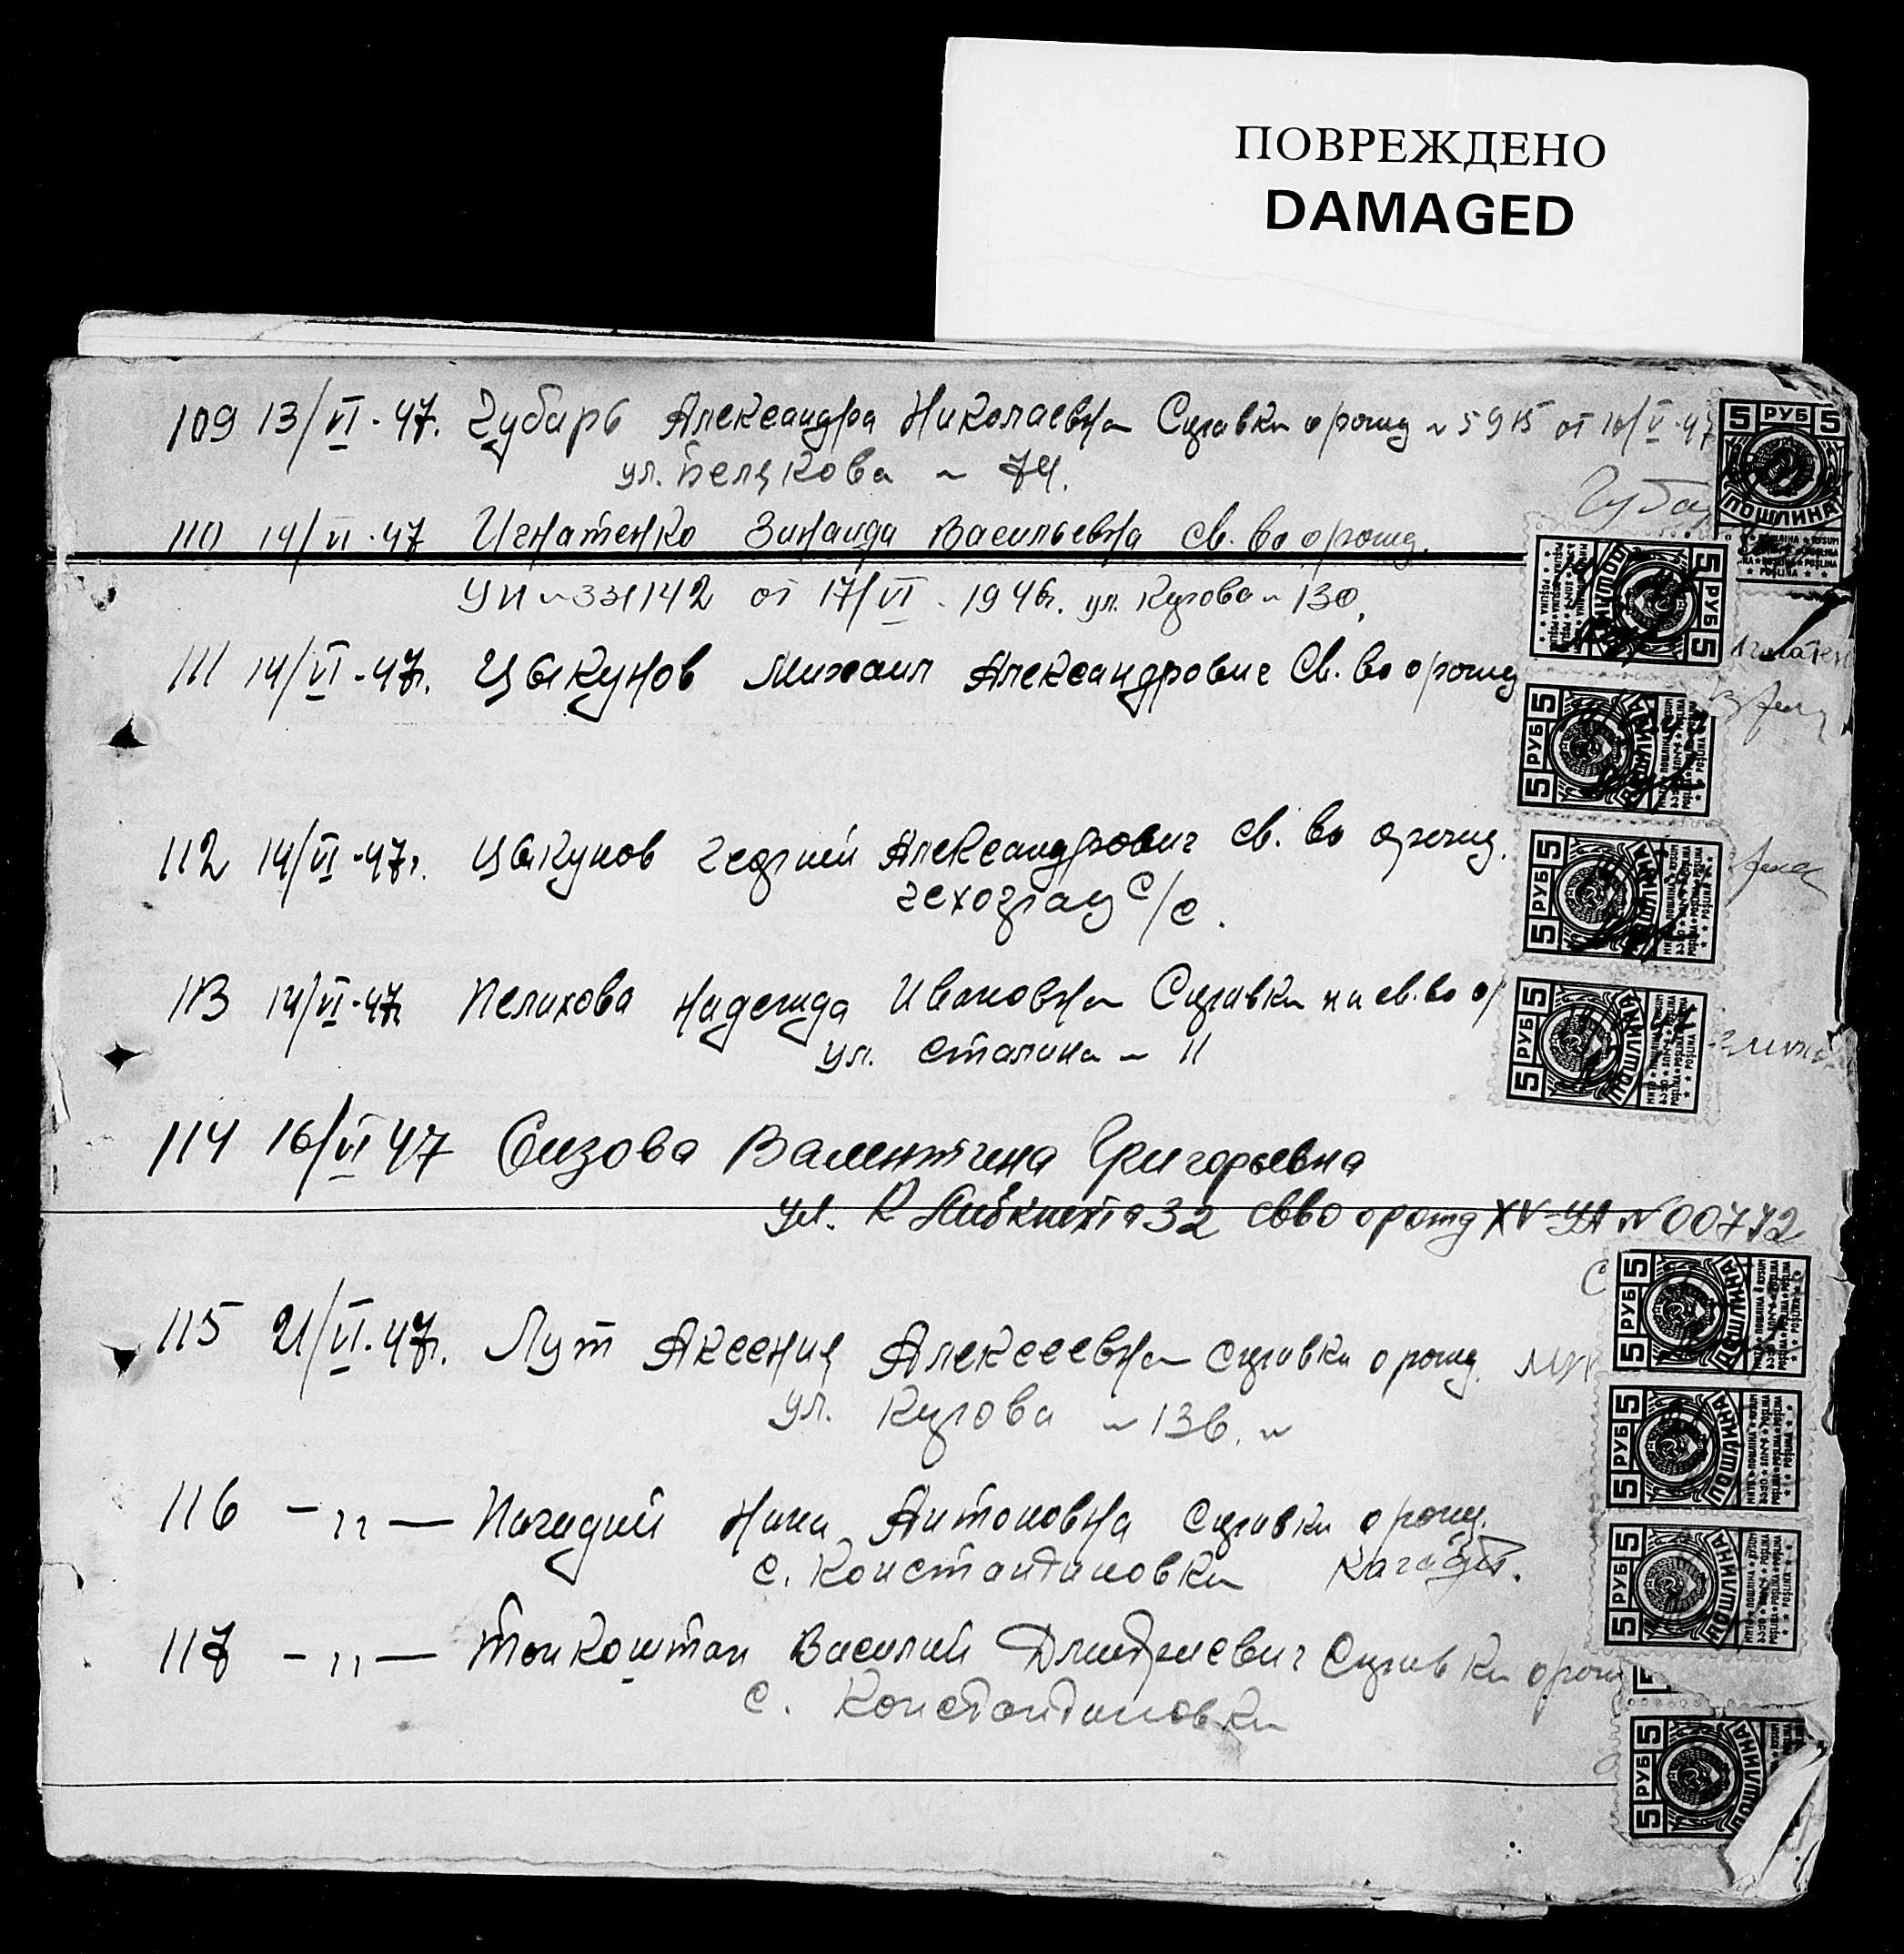 ПОВРЕЖДЕНО
DAMAGED
109 13/VI-47. Чубарь Александра Николаевна Справка о рожд № 5975 от 10/V-47
ул. Белякова № 74.
Чуба
110 14/VI-47 Игнатенко Зинаида Васильевна св. во о рожд.
УИ № 331142 от 17/VI-1946г. ул. Кирова № 130.
Игнатен
111 14/VI-47г. Цыкунов Михаил Александрович Св. во о рожд
112 14/VI-47г. Цыкунов Георгий Александрович св. во о рожд.
Чехоград с/с.
113 14/VI-47г. Пелихова Надежда Ивановна Справка на св. во о р
ул. Сталина № 11
114 16/VI 47 Сизова Валентина Григорьевна
ул. К Либкнехта 32 свво о рожд XV-УА № 00772
С
115 21/VI-47г. Лут Аксения Алексеевна справка о рожд.
ул. Кирова № 136.
116 -〃- Нагидий Нина Антоновна справка о рожд.
с. Константиновка
117 -〃- Тонкоштан Василий Дмитриевич Справка о рож
с. Константиновка
5 РУБ 5
ПОШЛИНА
5 РУБ 5
ПОШЛИНА
5 РУБ 5
ПОШЛИНА
5 РУБ 5
ПОШЛИНА
5 РУБ 5
ПОШЛИНА
5 РУБ 5
ПОШЛИНА
5 РУБ 5
ПОШЛИНА
5 РУБ 5
ПОШЛИНА
5 РУБ 5
ПОШЛИНА